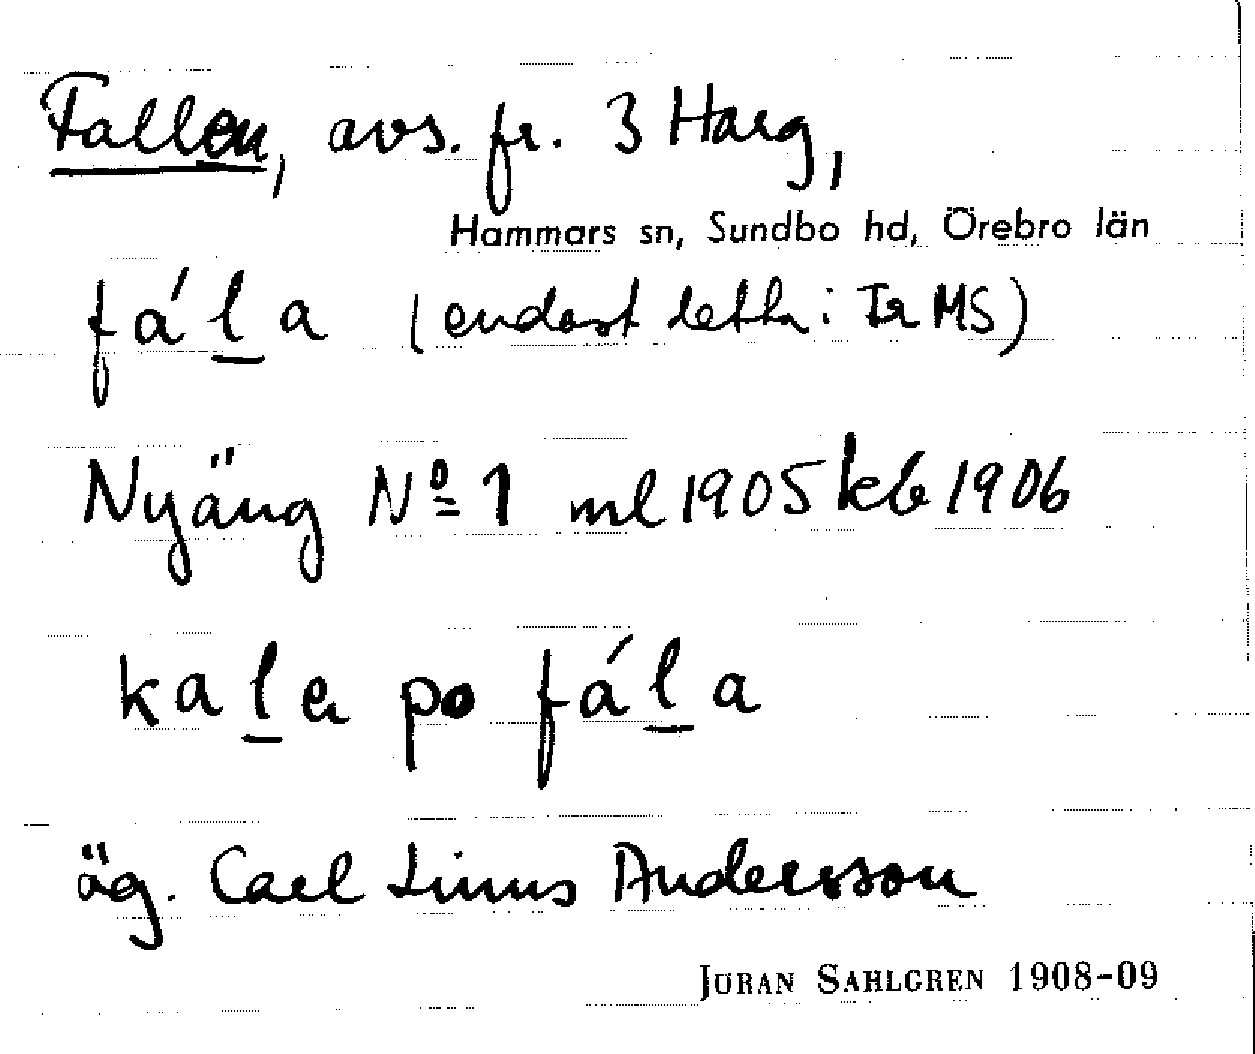 Fallen, avs. fr. 3 Harg,
Hammars sn, Sundbo hd, Örebro län
fá l̲a (endast detta: Tr MS)
Nyäng Nº 1 ml 1905 kb 1906
kal̲a po fál̲a
äg. Carl Linus Andersson
JÖRAN SAHLGREN 1908-09